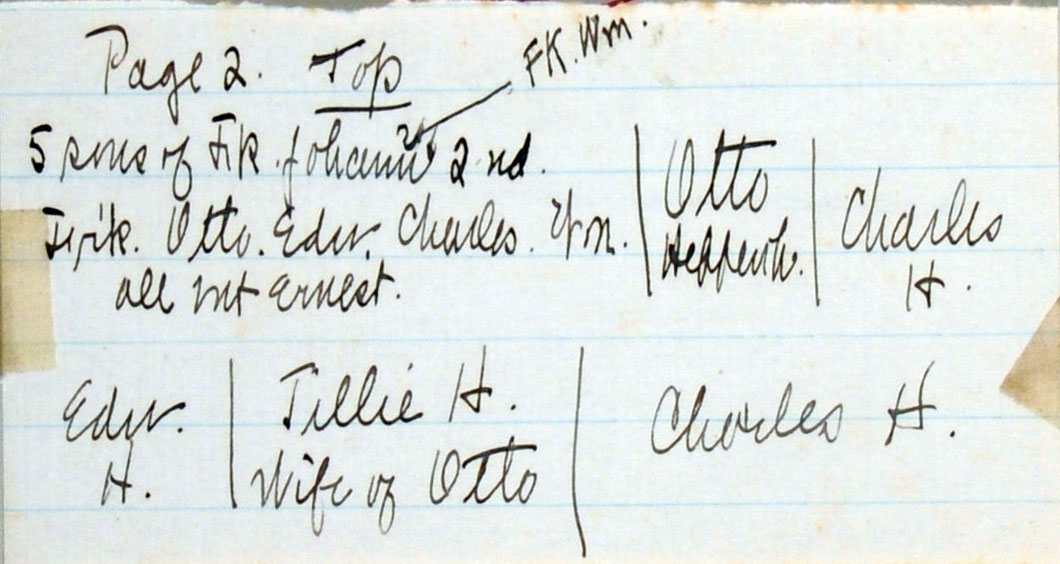 Page 2. Top FK. Wm.
5 sons of Frk. Johann 2nd.
Frk. Otto. Edw. Charles. Wm. | Otto | Charles
all but Ernest. H.
Edw. | Tillie H. | Charles H.
H. | Wife of Otto |